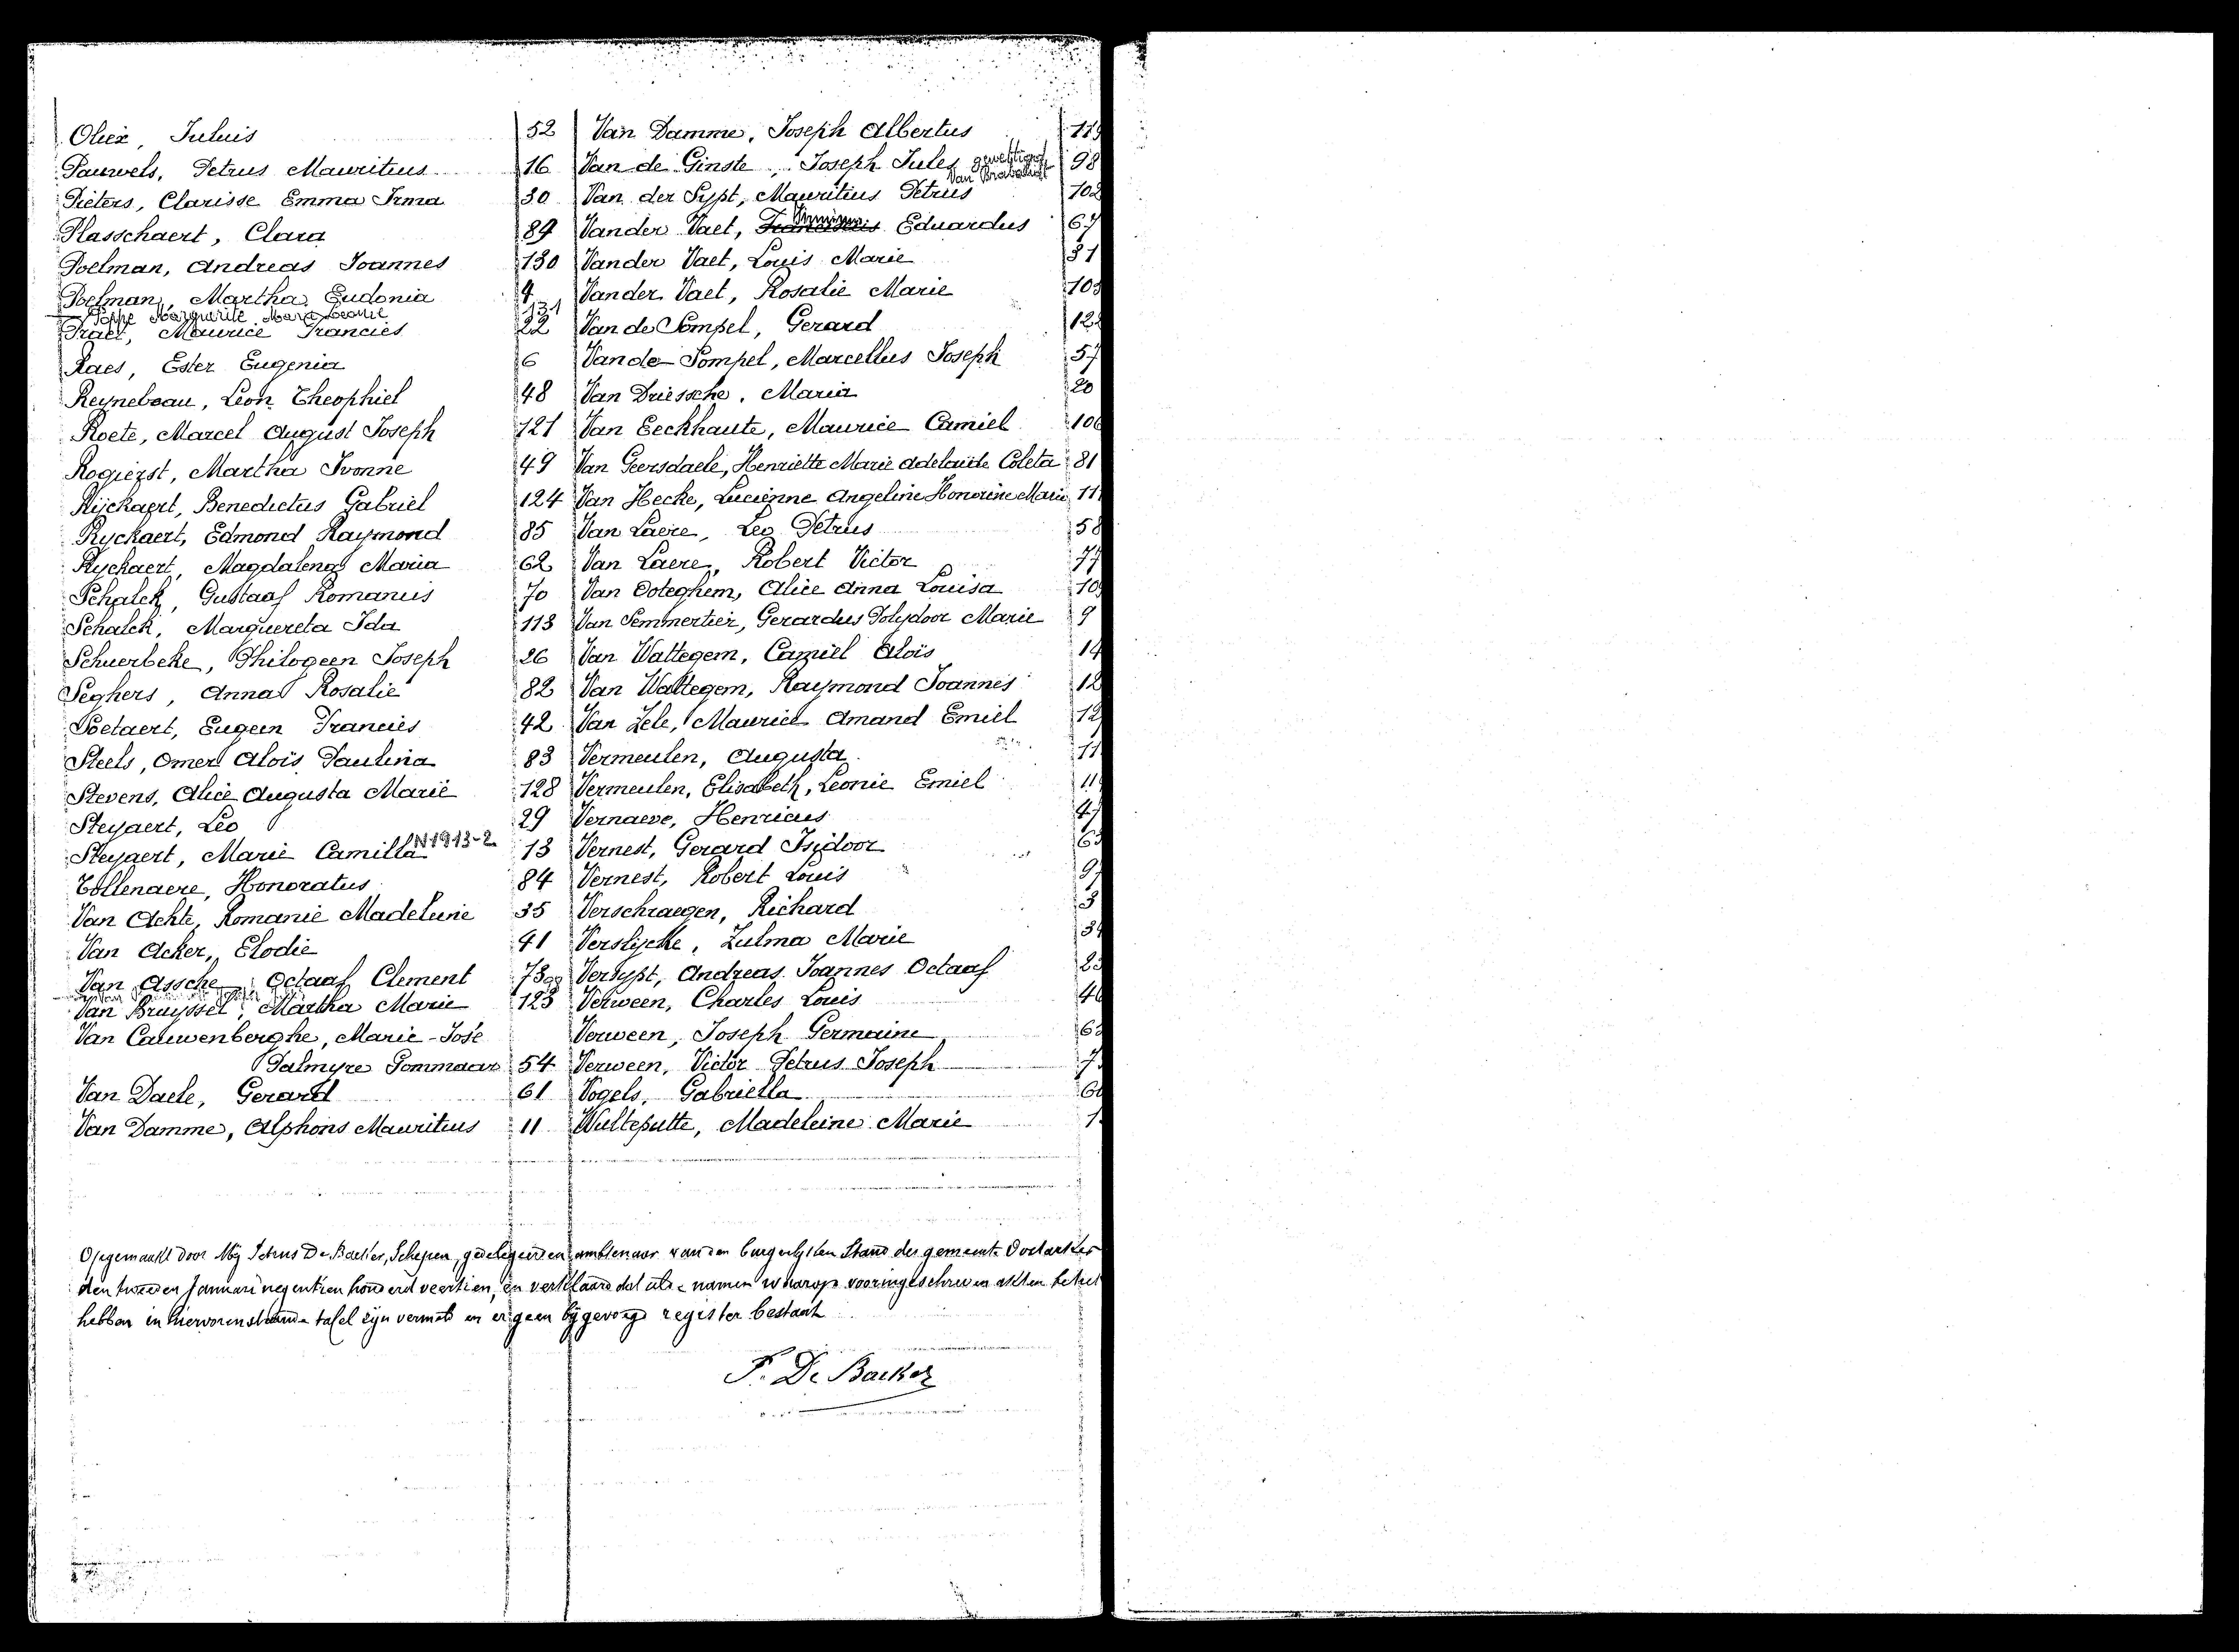 Oliex, Juluis 52
Pauwels, Petrus Mauritius 16
Pieters, Clarisse Emma Irma 30
Plasschaert, Clara 89
Poelman, Andreas Joannes 130
Poelman, Martha Eudonia 4
Poppe Marguerite Maria Leonie 131
Praet, Maurice Francies 22
Raes, Ester Eugenia 6
Reynebeau, Leon Theophiel 48
Roete, Marcel August Joseph 121
Rogierst, Martha Ivonne 49
Rijckaert, Benedictus Gabriel 124
Ryckaert, Edmond Raymond 85
Ryckaert, Magdalena Maria 62
Schalck, Gustaaf Romanus 70
Schalck, Marguereta Ida 113
Schuerbeke, Philogeen Joseph 26
Seghers, Anna Rosalie 82
Soetaert, Eugeen Francies 42
Steels, Omer Aloïs Paulina 83
Stevens, Alice Augusta Marie 128
Steyaert, Leo 29
Steyaert, Marie Camilla N 1913-2 13
Tollenaere, Honoratus 84
Van Achte, Romanie Madeleine 35
Van Acker, Elodie 41
Van Assche, Octaaf Clement 73
Van Bruyssel, Martha Marie 123
Van Cauwenberghe, Marie-José
Palmyre Pommaar 54
Van Daele, Gerard 61
Van Damme, Alphons Mauritius 11
Van Damme, Joseph Albertus
Van de Ginste, Joseph Jules 98
Van der Sypt, Mauritius Petrus 102
Vander Vaet, Franciscus Eduardus 67
Vander Vaet, Louis Marie 31
Vander Vaet, Rosalie Marie
Van de Pompel, Gerard
Van de Pompel, Marcellus Joseph 57
Van Driessche, Maria 20
Van Eeckhaute, Maurice Camiel 106
Van Geersdaele, Henriette Marie Adelaide Coleta 81
Van Hecke, Lucienne Angeline Honorine Marie
Van Laere, Leo Petrus 58
Van Laere, Robert Victor 77
Van Ooteghem, Alice Anna Louisa
Van Semmertier, Gerardus Polydoor Marie 9
Van Wattegem, Camiel Aloïs 14
Van Wattegem, Raymond Joannes
Van Zele, Maurice Amand Emiel
Vermeulen, Augusta
Vermeulen, Elisabeth, Leonie Emiel
Vernaeve, Henricus 47
Vernest, Gerard Isidoor
Vernest, Robert Louis
Verschraegen, Richard 3
Verslycke, Zulma Marie
Versypt, Andreas Joannes Octaaf
Verween, Charles Louis
Verween, Joseph Germaine
Verween, Victor Petrus Joseph
Vogels, Gabriella
Wulteputte, Madeleine Marie
Opgemaakt door Mij Petrus De Backer, Schepen, gedelegeerden ambtenaar van den burgerlyken Stand der gemeente Oostacker
den tweeden Januari negentien honderd veertien, en verklaard dat alle namen waarop vooringeschreven akten betrek
hebben in hiervorenstaande tafel zijn vermeld en er geen bijgevoegd register bestaat
P. De Backer